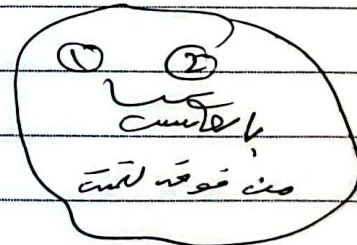 ① ②
بالعكس
من فوق لتحت